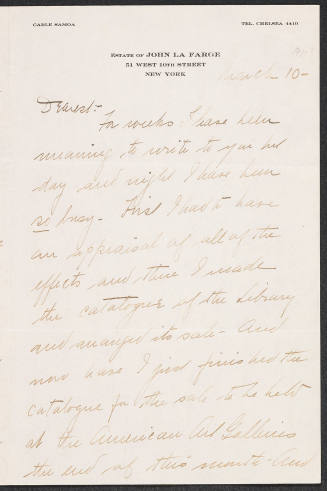 CABLE SAMOA
TEL. CHELSEA 4410
ESTATE OF JOHN LA FARGE
51 WEST 10TH STREET
NEW YORK
March 10-
Dearest-
For weeks I have been
meaning to write to you but
day and night I have been
so busy- First I had to have
an appraisal of all of the
effects and then I made
the catalogue of the Library
and arranged its sale- And
now have I just finished the
catalogue for the sale to be held
at the American Art Galleries
the end of this month- And